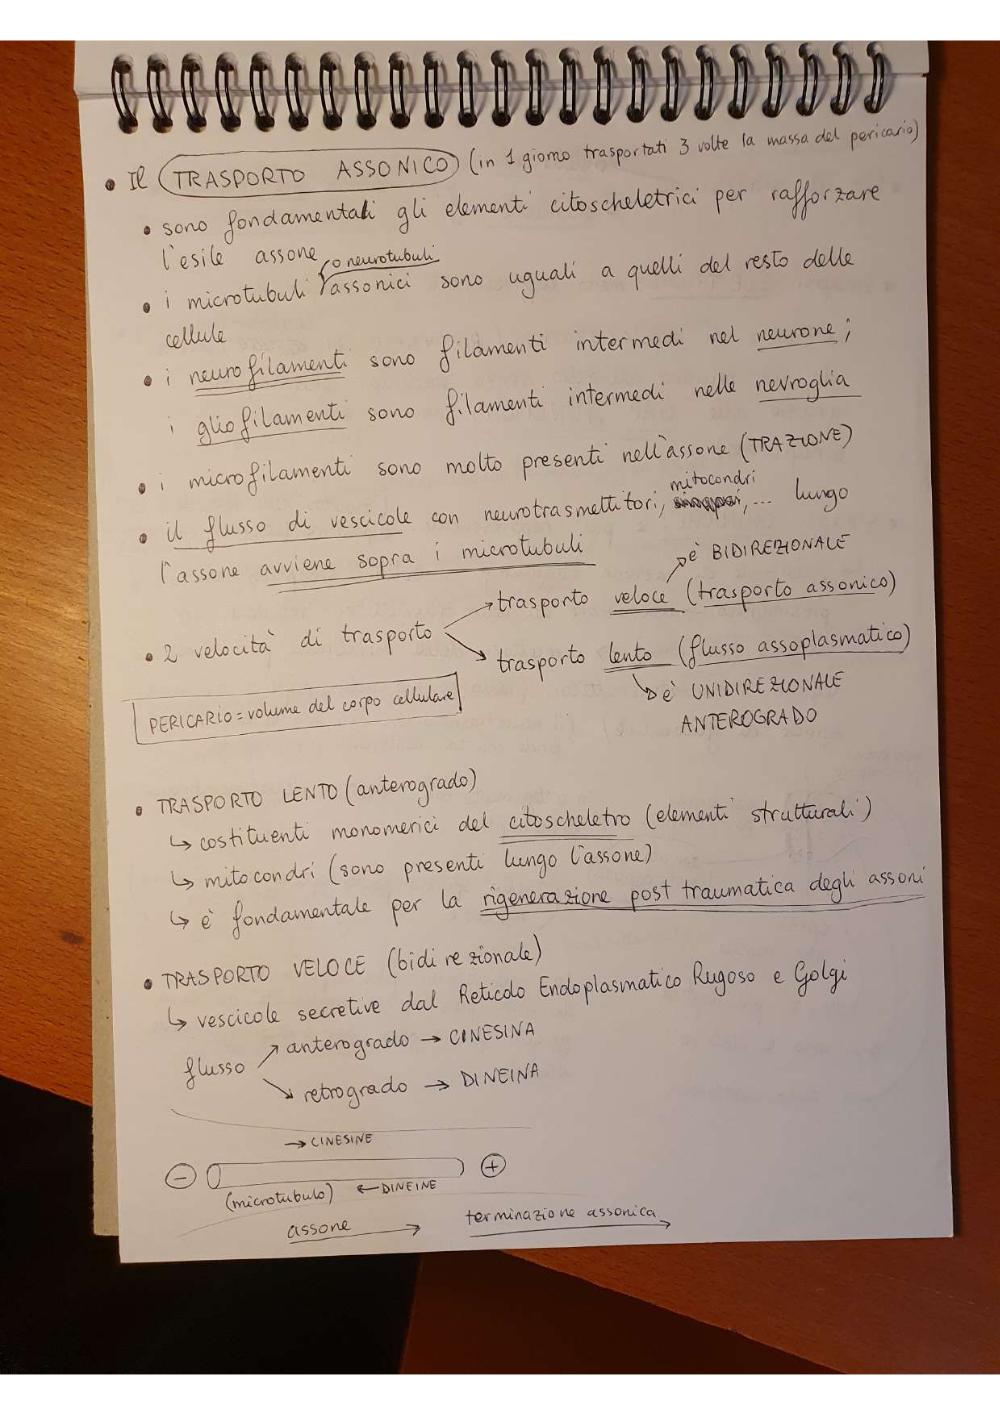 • Il TRASPORTO ASSONICO (in 1 giorno trasportati 3 volte la massa del pericario)
• sono fondamentali gli elementi citoscheletrici per rafforzare
l'esile assone
o neurotubuli
• i microtubuli assonici sono uguali a quelli del resto delle
cellule
• i neurofilamenti sono filamenti intermedi nel neurone;
i gliofilamenti sono filamenti intermedi nelle nevroglia
• i microfilamenti sono molto presenti nell'assone (TRAZIONE)
mitocondri
• il flusso di vescicole con neurotrasmettitori, ,... lungo
l'assone avviene sopra i microtubuli
è BIDIREZIONALE
→ trasporto veloce (trasporto assonico)
• 2 velocità di trasporto
→ trasporto lento (flusso assoplasmatico)
↳ è UNIDIREZIONALE
ANTEROGRADO
PERICARIO = volume del corpo cellulare
• TRASPORTO LENTO (anterogrado)
↳ costituenti monomerici del citoscheletro (elementi strutturali)
↳ mitocondri (sono presenti lungo l'assone)
↳ è fondamentale per la rigenerazione post traumatica degli assoni
• TRASPORTO VELOCE (bidirezionale)
↳ vescicole secretive dal Reticolo Endoplasmatico Rugoso e Golgi
↗ anterogrado → CINESINA
flusso
↘ retrogrado → DINEINA
→ CINESINE
- +
(microtubulo) ← DINEINE
assone → terminazione assonica →